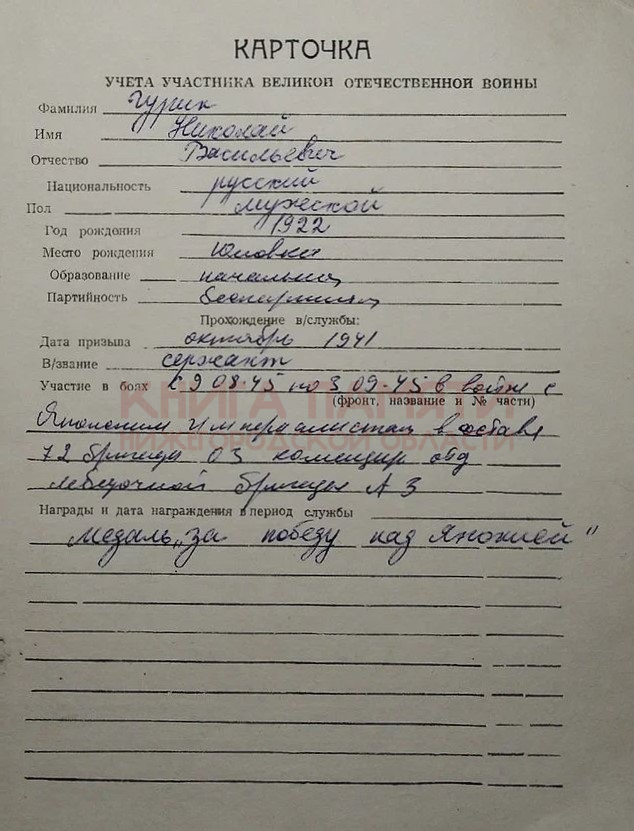 КАРТОЧКА
УЧЕТА УЧАСТНИКА ВЕЛИКОЙ ОТЕЧЕСТВЕННОЙ ВОЙНЫ
Фамилия Гурин
Имя Николай
Отчество Васильевич
Национальность русский
Пол мужской
Год рождения 1922
Место рождения Юловка
Образование начальн
Партийность беспартийн
Прохождение в/службы:
Дата призыва октябрь 1941
В/звание сержант
Участие в боях с 9 08.45 по 3 09-45 в войне с
(фронт, название и № части)
КНИГА ПАМЯТИ
Японским империалистам в составе
НИЖЕГОРОДСКОЙ ОБЛАСТИ
72 бригады ОЗ командир отд
лебедочной бригады АЗ
Награды и дата награждения в период службы
медаль „за победу над Японией"